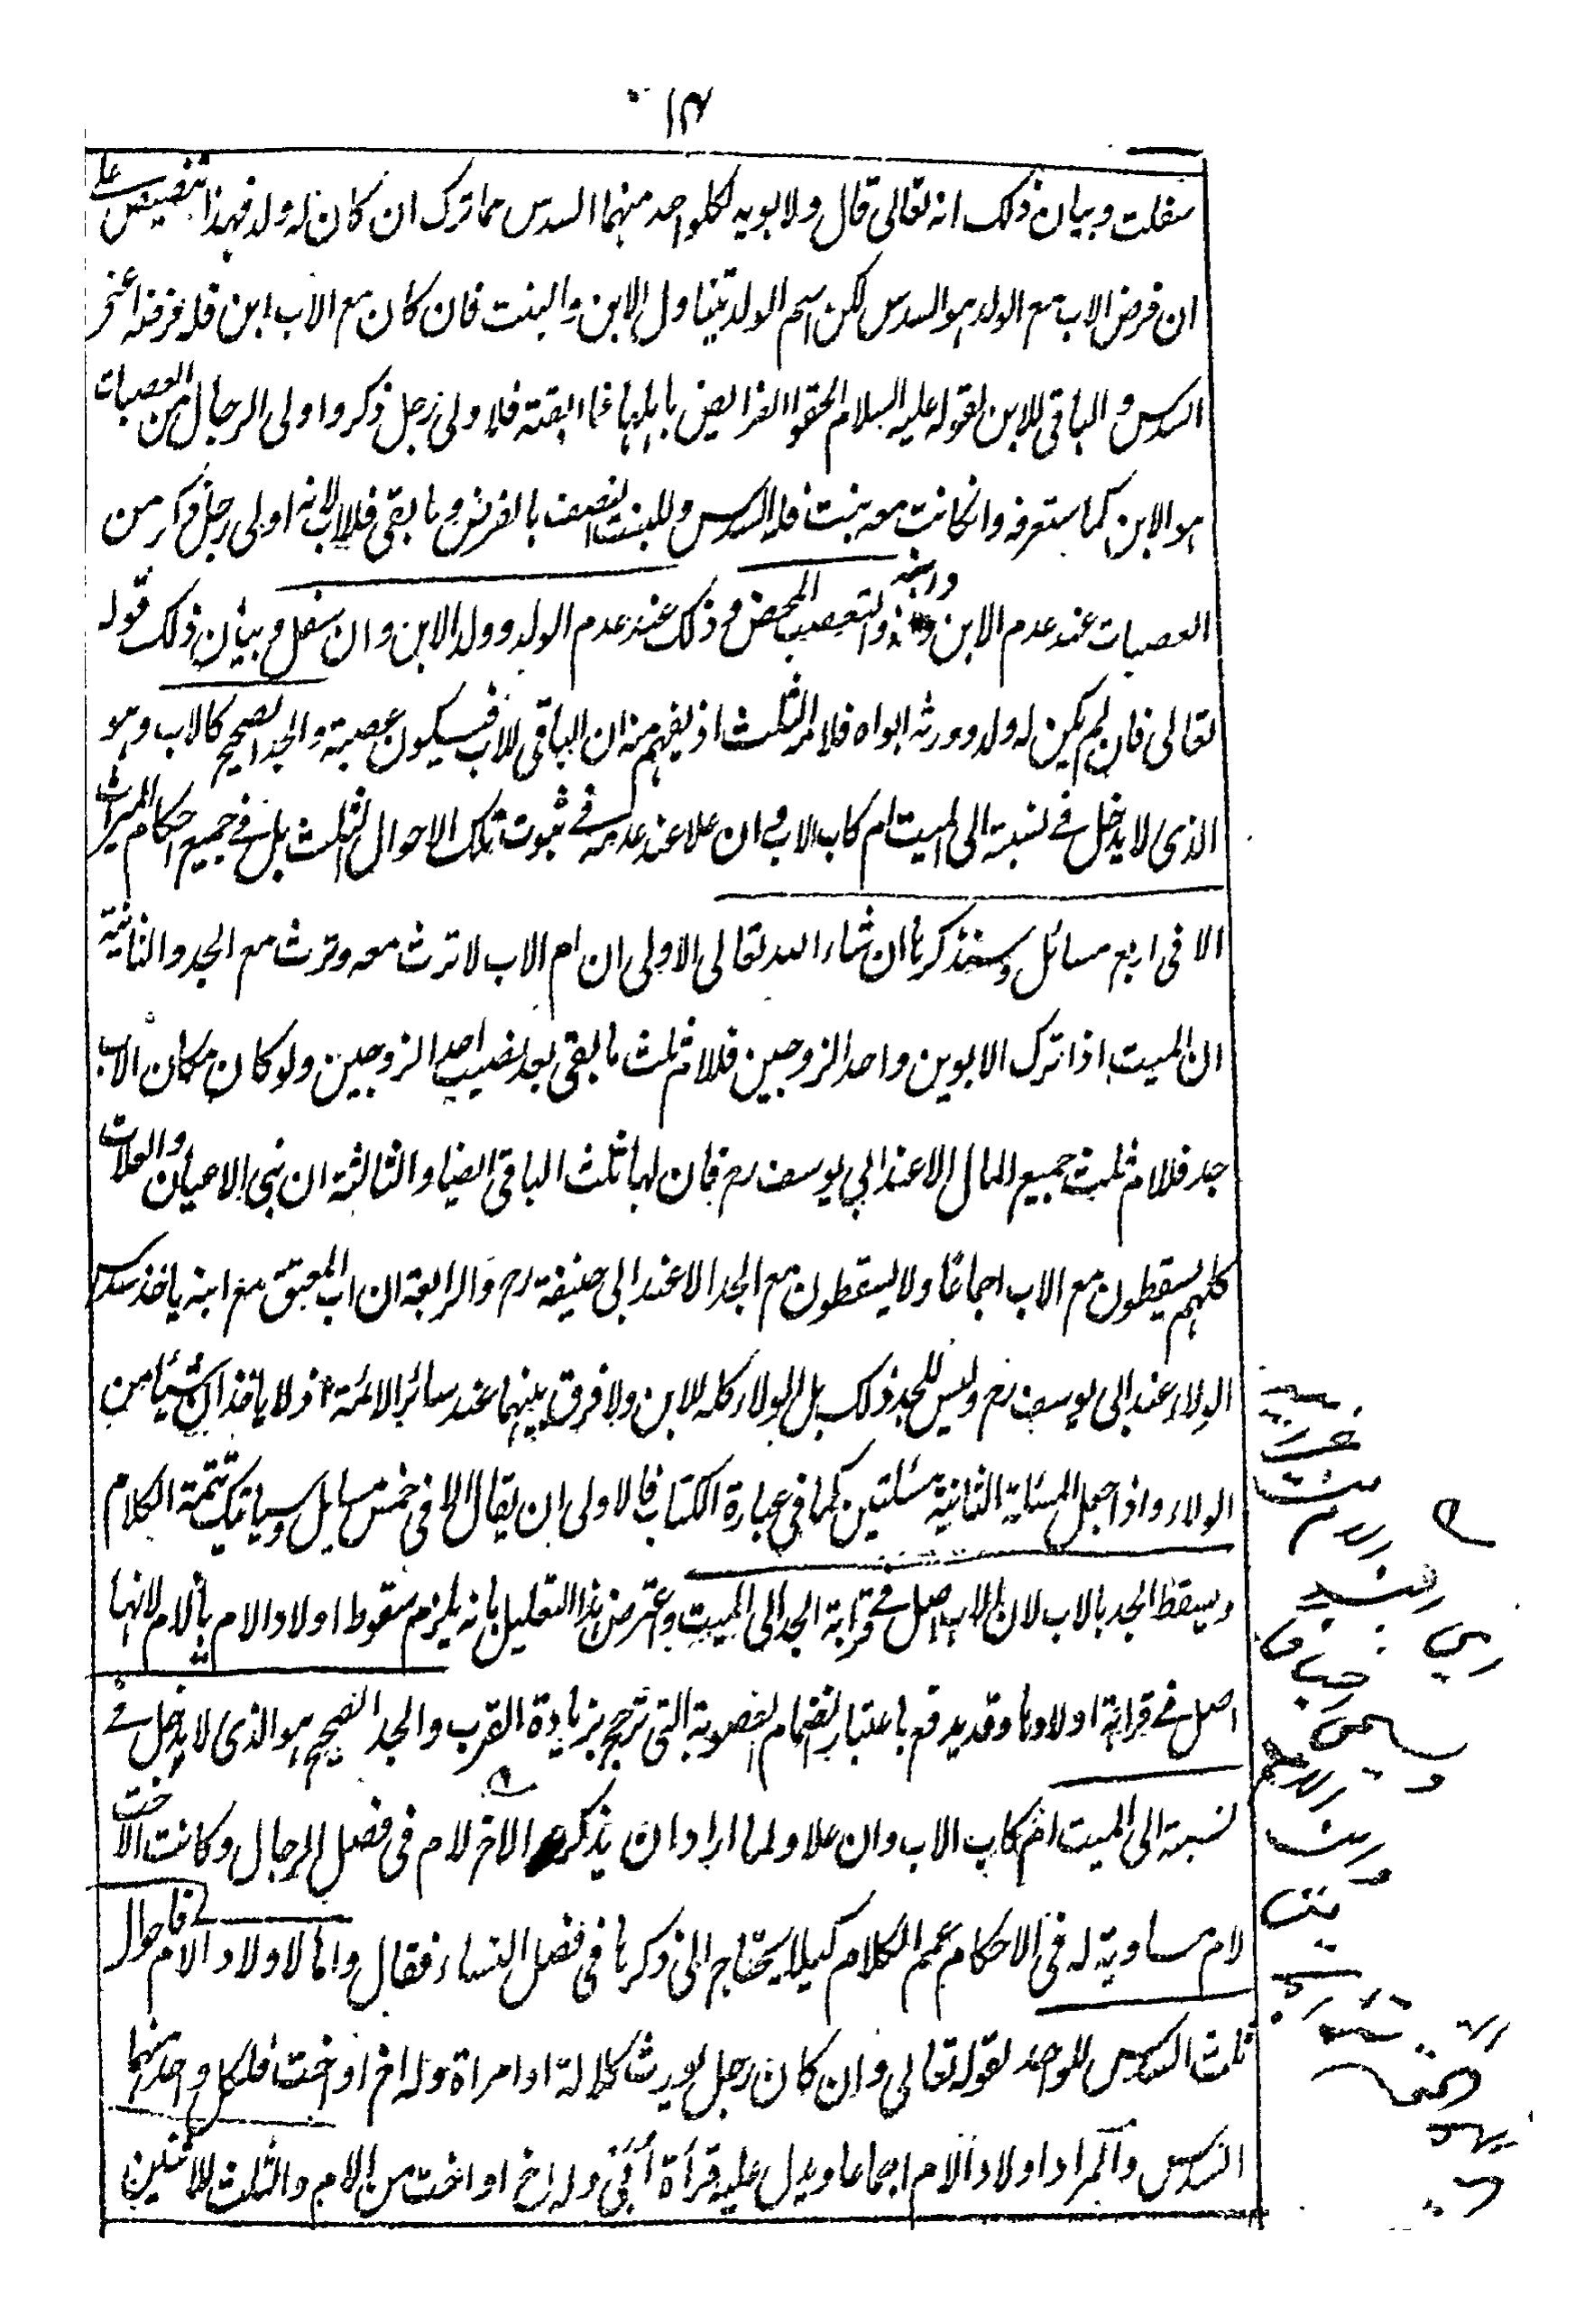 ١٣
سفلت وبيان ذلك انه تعالى قال ولابويه لكلواحد منهما السدس مما ترك ان كان له ولد فهذا تنصيص على
ان فرض الاب مع الولد هو السدس لكن اسم الولد يتناول الابن والبنت فان كان مع الاب ابن فله فرضه اعنى
السدس والباقى للابن لقوله عليه السلام الحقوا الفرايض باهلها فما ابقته فلاولى رجل ذكر واولى الرجال من العصبات
هو الابن كما ستعرفه وانكانت معه بنت فله السدس وللبنت النصف بالفرض وما بقى فللاب لانه اولى رجل ذكر من
العصبات عند عدم الابن وابنه والتعصيب المحض وذلك عند عدم الولد وولد الابن وان سفل وبيان ذلك قوله
تعالى فان لم يكن له ولد وورثه ابواه فلامه الثلث اذ يفهم منه ان الباقى للاب فيكون عصبة والجد الصحيح كالاب وهو
الذى لا يدخل فى نسبته الى الميت ام كاب الاب وان علا عند عدمه فى ثبوت تلك الاحوال الثلث بل فى جميع احكام الميراث
الا فى اربع مسائل وسنذكرها ان شاء الله تعالى الاولى ان ام الاب لا ترث معه وترث مع الجد والثانية
ان الميت اذا ترك الابوين واحد الزوجين فللام ثلث ما بقى بعد نصيب احد الزوجين ولو كان مكان الاب
جد فللام ثلث جميع المال الا عند ابي يوسف رح فان لها ثلث الباقى ايضا والثالثة ان بنى الاعيان والعلات
كلهم يسقطون مع الاب اجماعًا ولا يسقطون مع الجد الا عند ابى حنيفة رح والرابعة ان اب المعتق مع ابنه ياخذ سدس
الولاء عند ابى يوسف رح وليس للجد ذلك بل الولاء كله للابن ولا فرق بينهما عند سائر الائمة اذ لا ياخذان شيئا من
الولاء واذا جعل المسئلة الثانية مسئلتين كما فى عبارة الكتاب فالاولى ان يقال الا فى خمس مسايل وسياتيك تتمة الكلام
ويسقط الجد بالاب لان الاب اصل فى قرابة الجد الى الميت واعترض هذا التعليل بانه يلزم سقوط اولاد الام بالام لانها
اصل فى قرابة اولادها وقد يدفع باعتبار انضمام العصوبة التى ترجح بزيادة القرب والجد الصحيح هو الذى لا يدخل فى
نسبته الى الميت ام كاب الاب وان علا ولما اراد ان يذكر الاخ لام فى فصل الرجال وكانت الاخت
لام مساوية له فى الاحكام عمم الكلام كيلا يحتاج الى ذكرها فى فصل النساء فقال واما لاولاد الام فاحوال
ثلث السدس للواحد لقوله تعالى وان كان رجل يورث كلالة او امراة وله اخ او اخت فلكل واحد منهما
السدس والمراد اولاد الام اجماعا ويدل عليه قرأة أُبَىّ وله اخ او اخت من الام والثلث للاثنين